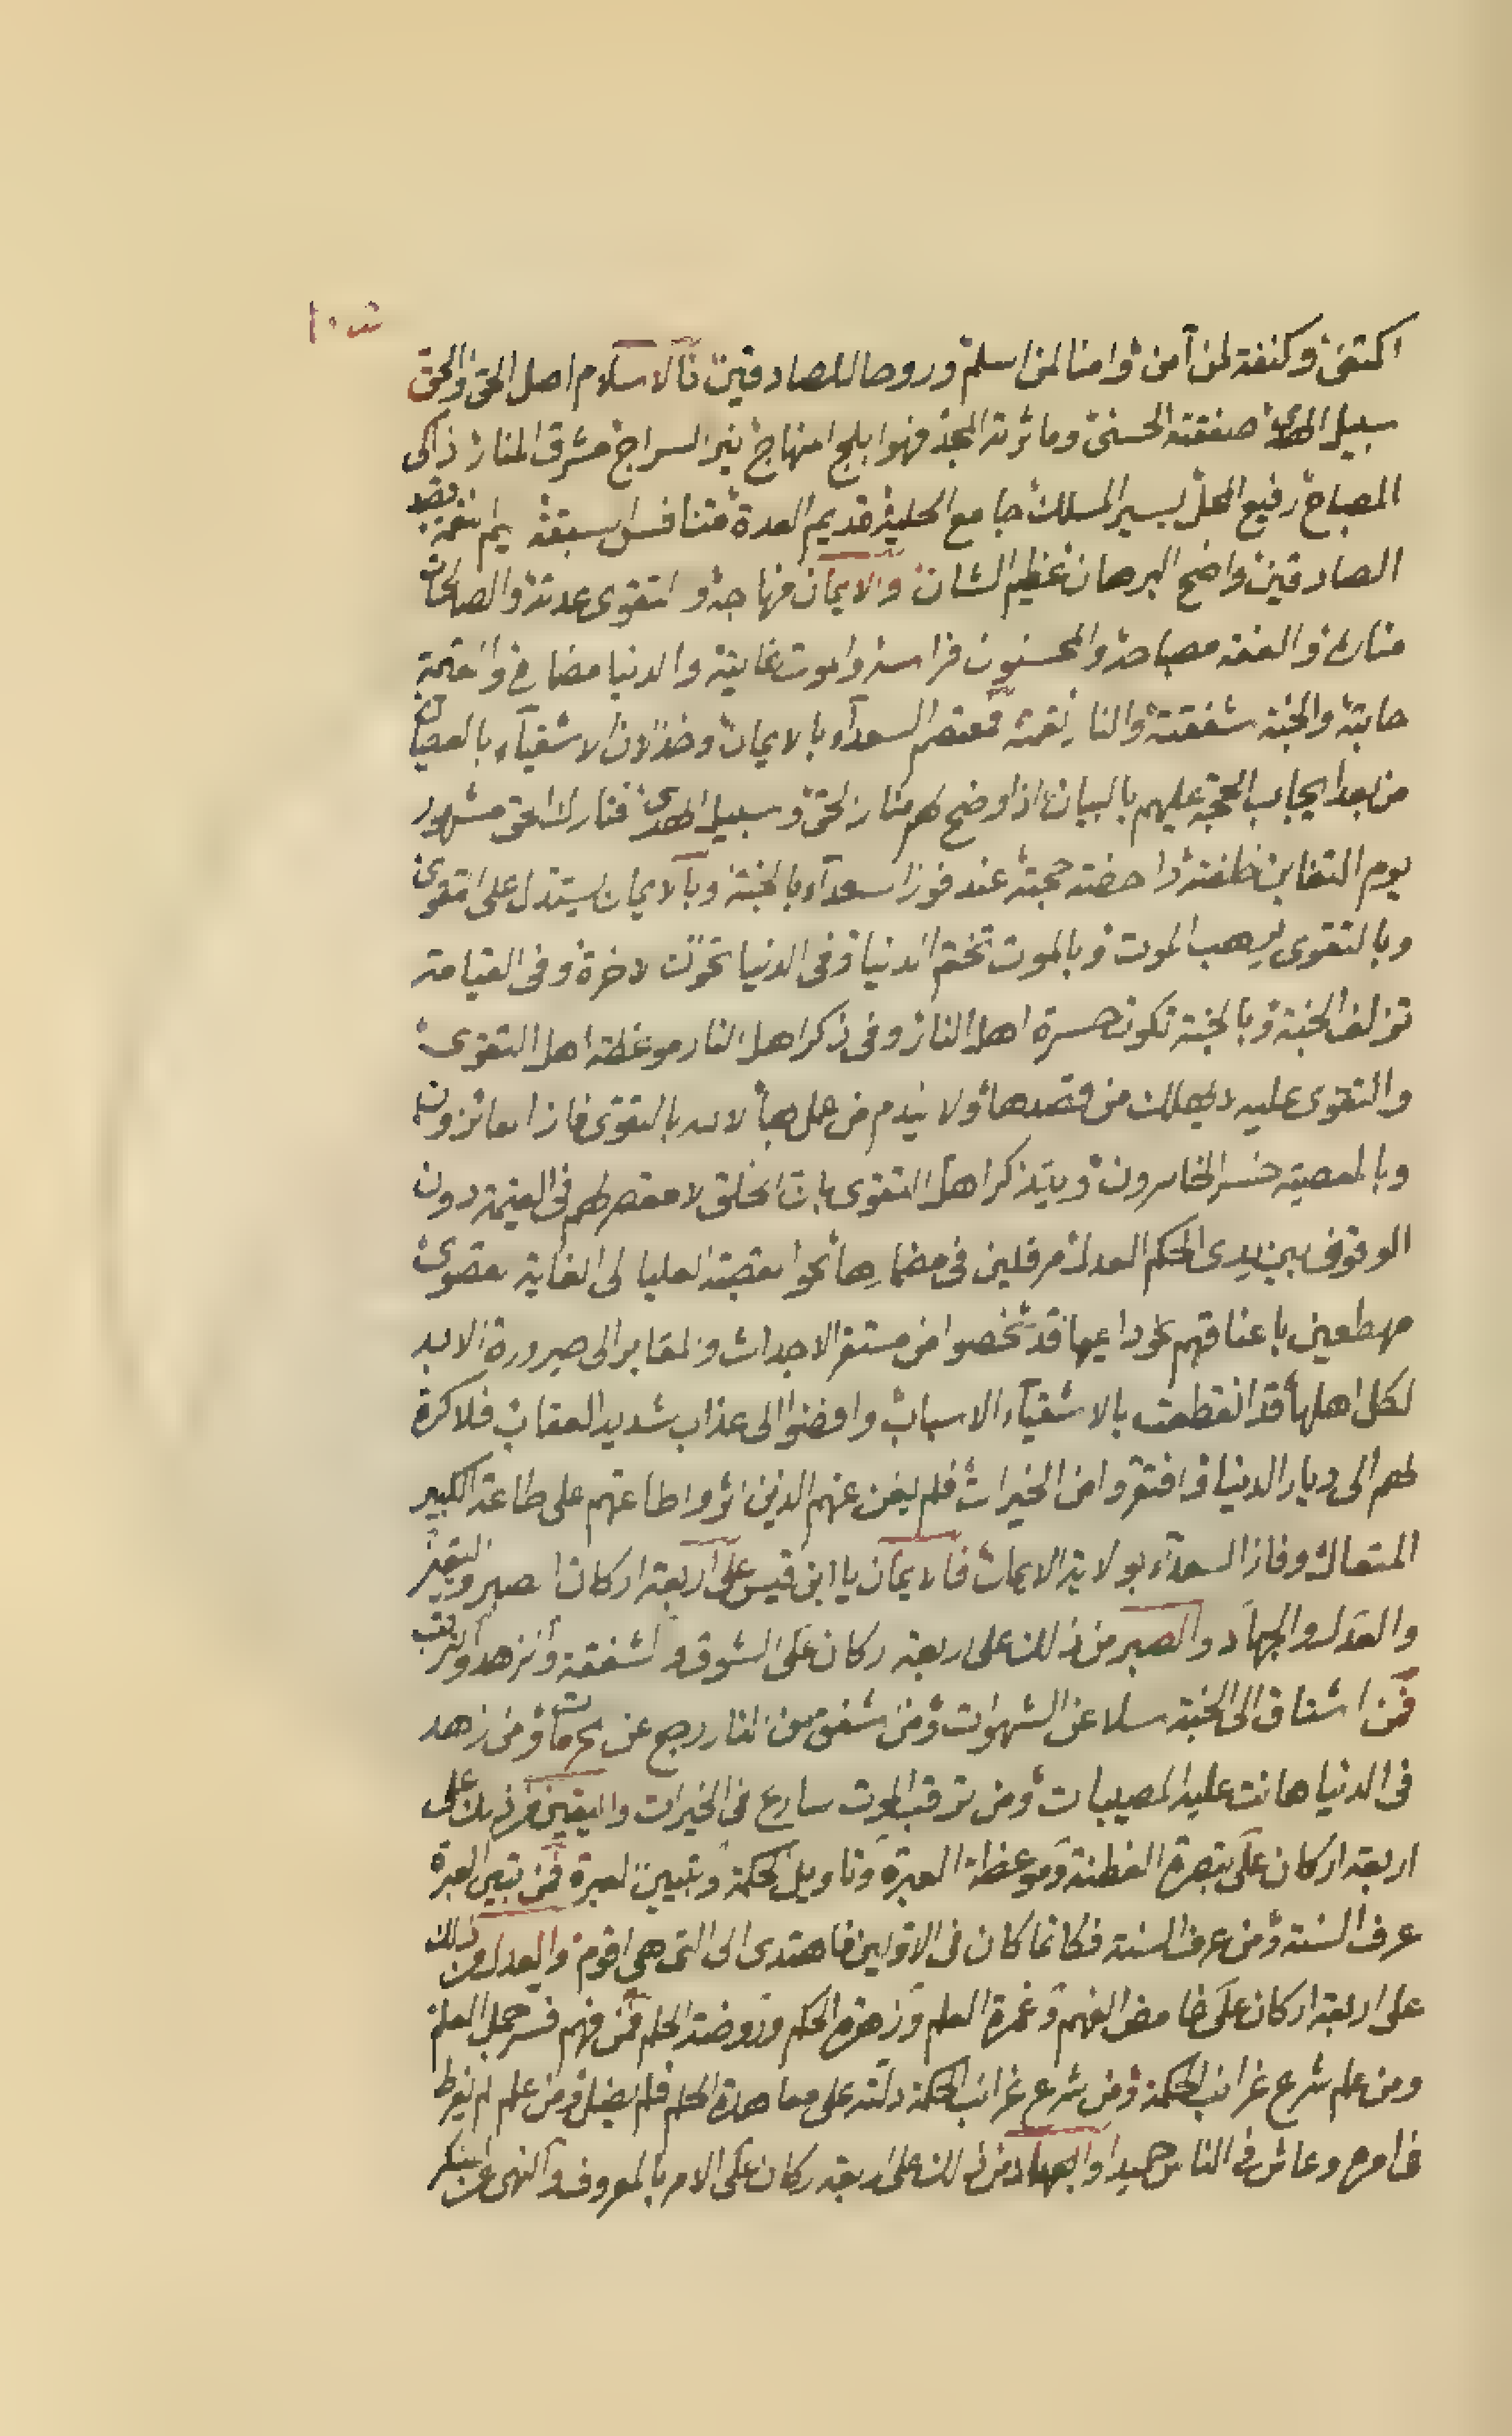 اكتفى وكنفة لمن آمن وامنا لمن اسلم وروحا للصادقين فالاسلام اصل الحق والحق
سبيل الهدى صفقته الحسنى وماثرته المجد فهو ابلج المنهاج نير السراج مشرق المنار ذاكى
المصباح رفيع المحل يسير المسلك جامع الحلية قديم العدة متنافس السبقة يم النقمة قصد
الصادقين واضح البرهان عظيم الشان والايمان منهاجه والتقوى عدته والصالحات
مناره والعفة مصباحه والمحسنون فراسنه والموت غايته والدنيا مضماره والقيمة
حلبته والجنة شفقته والنار نقمته فمعتصم السعدآء بالايمان وخذلان الاشقيآء بالعصيان
من بعد ايجاب الحجة عليهم بالبيان اذا وضح لهم منار الحق وسبيل الهدى فتارك الحق مشهور
يوم التغابن خلفته داحضته حجته عند فوز السعدآء بالجنة وبالايمان يستدل على التقوى
وبالتقوى يرهب الموت وبالموت تختم الدنيا وفى الدنيا تحوّت الاخرة وفى القيامة
تزلف الجنة وبالجنة تكون حسرة اهل النار وفى ذكر اهل النار موعظة اهل التقوى
والتقوى عليه لا يهلك من قصدها ولا يندم من عمل بها لانه بالتقوى فاز الفائزون
وبالمعصية خسر الخاسرون ويتذكر اهل التقوى بان الخلق لا مقصر لهم فى القيمة دون
الوقوف بين يدى الحكم العدل مرقلين فى مضمارها نحو القصبة العليا الى الغاية القصوى
مهطعين باعناقهم نحو داعيها قد شخصوا من مستقر الاجداث والمقابر الى صيرورة الابد
لكل اهلها قد انقطعت بالاشقيآء الاسباب وافضوا الى عذاب شديد العقاب فلا كرة
لهم الى ديار الدنيا وافتقروا من الخيرات فلم يغن عنهم الذين اثروا طاعتهم على طاعة الكبير
المتعال وفاز السعدآء بولاية الايمان فالايمان يا ابن قيس على اربعة اركان الصبر واليقين
والعدل والجهاد والصبر من ذلك على اربعة اركان على الشوق والشفقة والزهد والترقب
فمن اشتاق الى الجنة سلا عن الشهوات ومن شفق من النار رجع عن المحرمات ومن زهد
فى الدنيا هانت عليه المصيبات ومن ترقب الموت سارع فى الخيرات واليقين من ذلك على
اربعة اركان على تبصرة الفطنة وموعظة العبرة وتاويل الحكمة وتبيين العبرة فمن تبين العبرة
عرف السنة ومن عرف السنة فكانما كان فى الاوّلين فاهتدى الى التى هى اقوم والعدل من ذلك
على اربعة اركان على غامض الفهم وغمرة العلم وزهرة الحكم وروضة الحلم فمن فهم فسر جمل العلم
ومن علم شرع غرائب الحكمة ومن شرع غرائب الحكمة دلّته على معاهدة الحلم فلم يضل ومن حلم لم يفرط
فى امره وعاش فى الناس حميدا والجهاد من ذلك على اربعة اركان على الامر بالمعروف والنهى عن المنكر